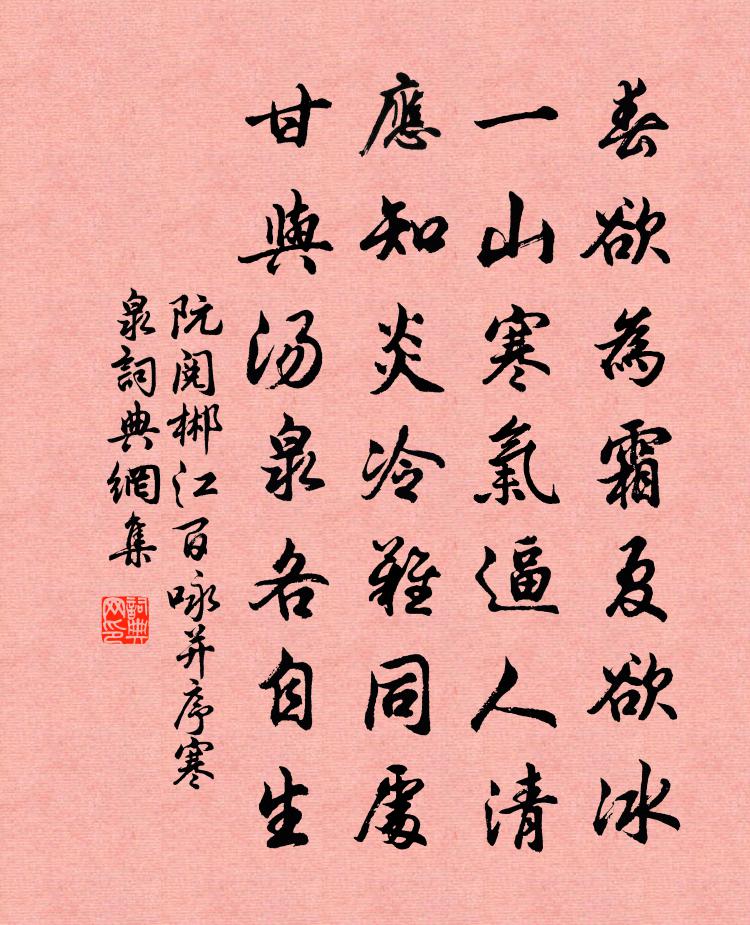 春欲為霜夏欲冰
一山寒氣逼人清
應知炎冷難同處
甘與湯泉各自生
阮閱郴江百咏并序寒
泉詞典網集
詞典網印